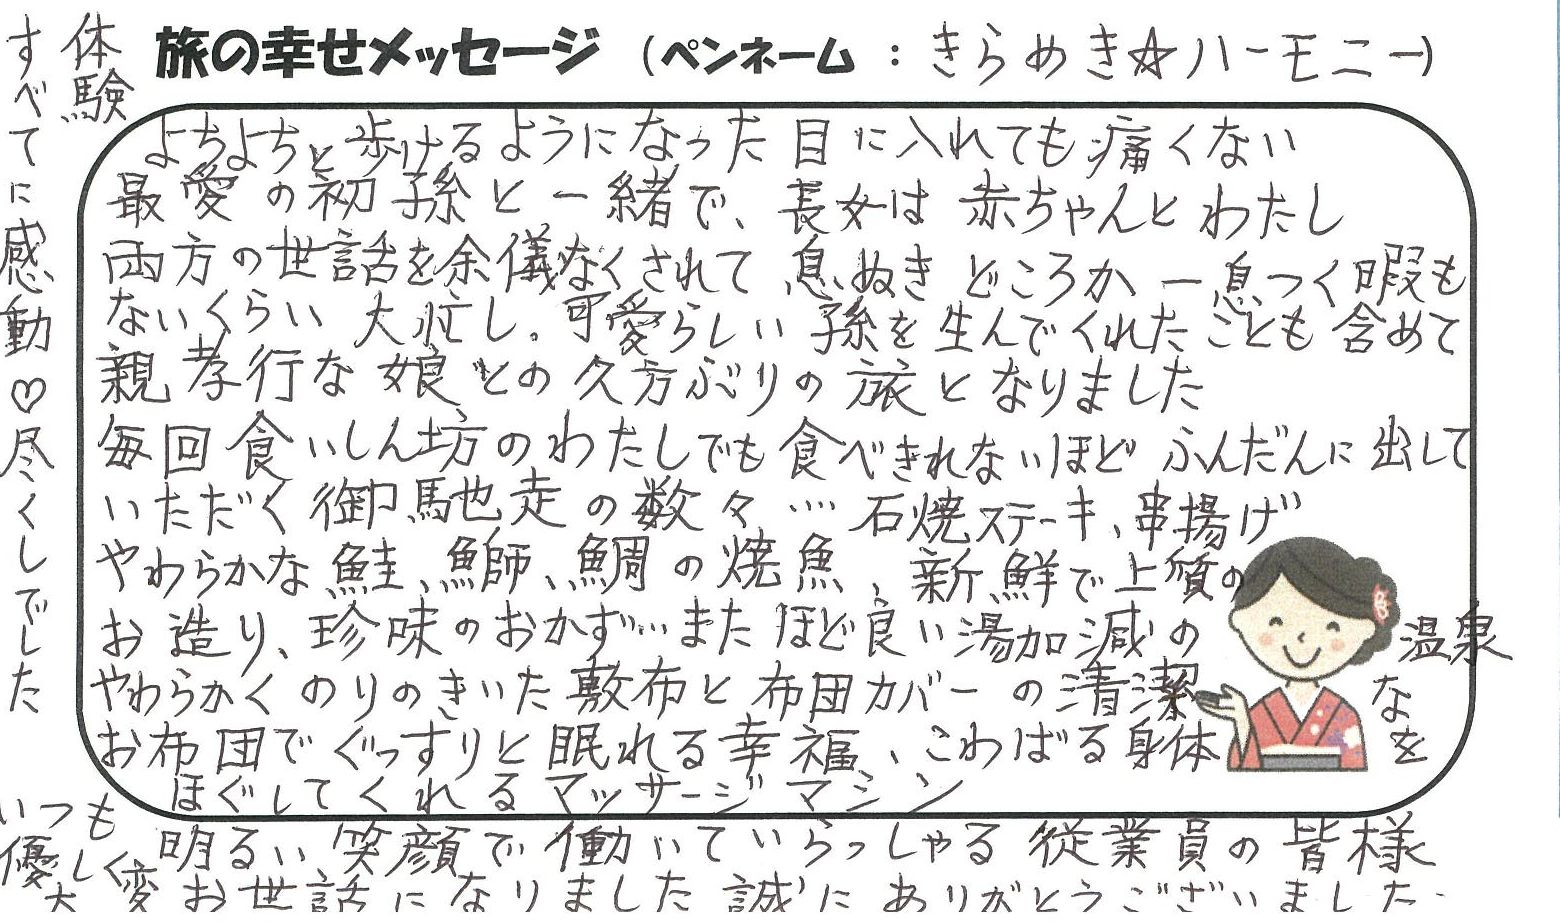 旅の幸せメッセージ （ペンネーム ： きらめき☆ハーモニー）
よちよちと歩けるようになった目に入れても痛くない
最愛の初孫と一緒で、長女は赤ちゃんとわたし
両方の世話を余儀なくされて息ぬきどころか一息つく暇も
ないくらい大忙し。可愛らしい孫を生んでくれたことも含めて
親孝行な娘との久方ぶりの旅となりました
毎回食いしん坊のわたしでも食べきれないほどふんだんに出して
いただく御馳走の数々…石焼ステーキ、串揚げ
やわらかな鮭、鰤、鯛の焼魚、新鮮で上質の
お造り、珍味のおかず…またほど良い湯加減の温泉
やわらかくのりのきいた敷布と布団カバーの清潔な
お布団でぐっすりと眠れる幸福、こわばる身体を
ほぐしてくれるマッサージマシン
いつも
優しく明るい笑顔で働いていらっしゃる従業員の皆様
大変お世話になりました誠にありがとうございました.
体験
すべてに感動♡尽くしでした